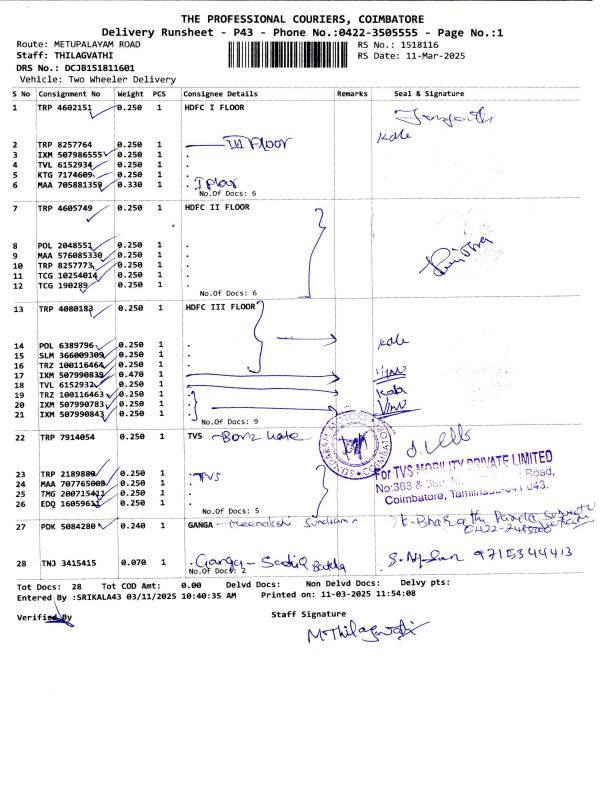 THE PROFESSIONAL COURIERS, COIMBATORE
Delivery Runsheet - P43 - Phone No.:0422-3505555 - Page No.:1
Route: METUPALAYAM ROAD RS No.: 1518116
Staff: THILAGVATHI RS Date: 11-Mar-2025
DRS No.: DCJB151811601
Vehicle: Two Wheeler Delivery
S No Consignment No Weight PCS Consignee Details Remarks Seal & Signature
1 TRP 4602151 0.250 1 HDFC I FLOOR
2 TRP 8257764 0.250 1 . III Floor
3 IXM 507986555 0.250 1 .
4 TVL 6152934 0.250 1 .
5 KTG 7174609 0.250 1 .
6 MAA 705881359 0.330 1 . I floor
No.Of Docs: 6
7 TRP 4605749 0.250 1 HDFC II FLOOR
8 POL 2048551 0.250 1 .
9 MAA 576085330 0.250 1 .
10 TRP 8257773 0.250 1 .
11 TCG 10254014 0.250 1 .
12 TCG 190289 0.250 1 .
No.Of Docs: 6
13 TRP 4080183 0.250 1 HDFC III FLOOR
14 POL 6389796 0.250 1 .
15 SLM 366009309 0.250 1 .
16 TRZ 100116464 0.250 1 .
17 IXM 507990839 0.470 1 .
18 TVL 6152932 0.250 1 .
19 TRZ 100116463 0.250 1 .
20 IXM 507990783 0.250 1 .
21 IXM 507990843 0.250 1 .
No.Of Docs: 9
22 TRP 7914054 0.250 1 TVS
23 TRP 2189880 0.250 1 . TVS
24 MAA 707765008 0.250 1 .
25 TMG 200715411 0.250 1 .
26 EDQ 16059613 0.250 1 .
No.Of Docs: 5
SUNDARAM MOTORS COIMBATORE
For TVS MOBILITY PRIVATE LIMITED
No:368 & Road,
Coimbatore, Tamilnadu-641 043.
27 PDK 5084280 0.240 1 GANGA - Meenakshi Sundaram
0422-
28 TNJ 3415415 0.070 1 . Ganga - Sadiq 9715344413
No.Of Docs: 2
Tot Docs: 28 Tot COD Amt: 0.00 Delvd Docs: Non Delvd Docs: Delvy pts:
Entered By :SRIKALA43 03/11/2025 10:40:35 AM Printed on: 11-03-2025 11:54:08
Verified By Staff Signature
M.Thilagavathi